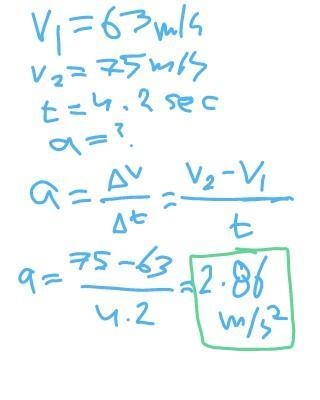 V₁ = 63 m/s
v₂ = 75 m/s
t = 4.2 sec
a = ?
a = Δv/Δt = (V₂ - V₁)/t
a = (75 - 63)/4.2 = 2.86 m/s²